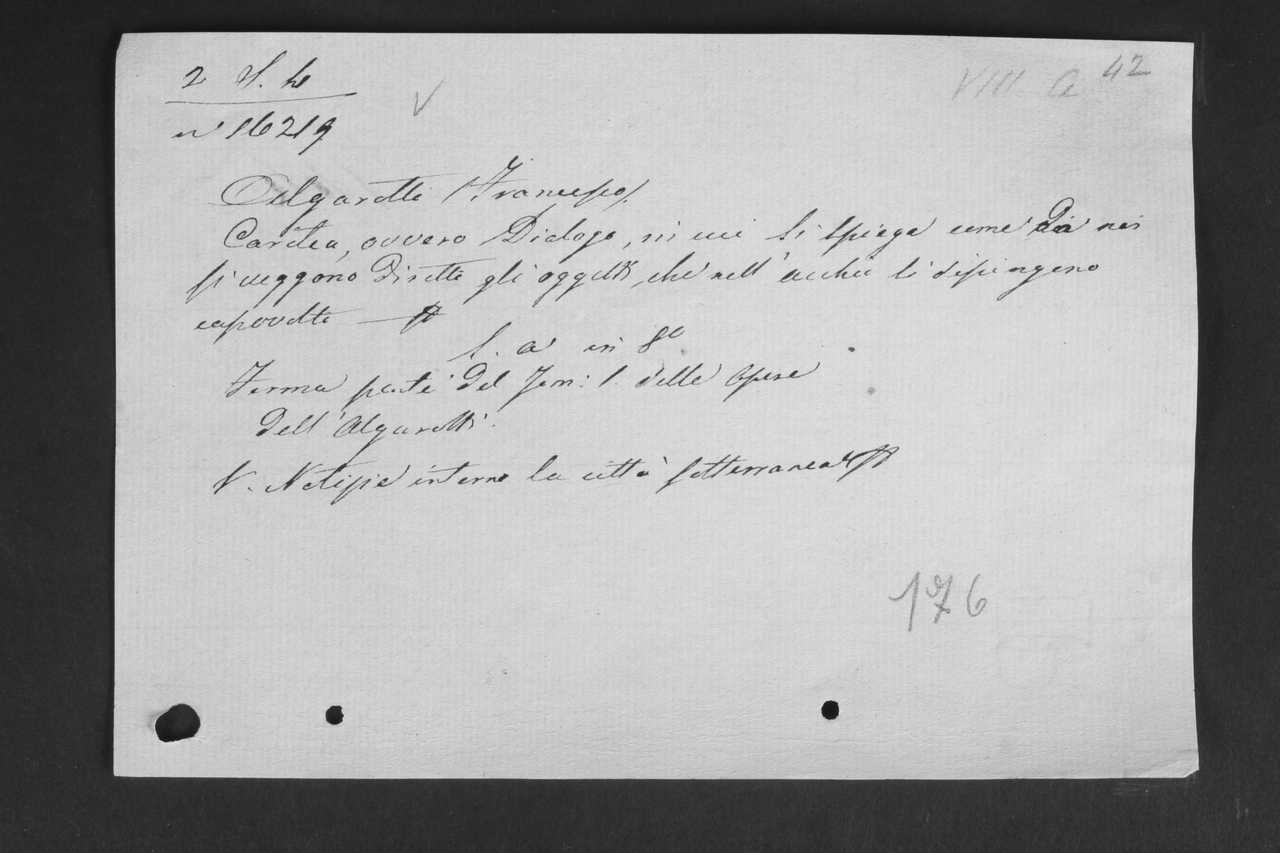 2 H. 4
VIII a 42
nº 16219
Algarotti (Francesco)
Caritea, ovvero Dialogo, in cui si spiega come da noi
si veggono diretti gli oggetti, che nell'occhio si dipingono
capovolti
s. a. in 8º
Forma parte del Tom: 1. delle opere
dell'Algarotti.
V. Notizie intorno la città sotterranea
176